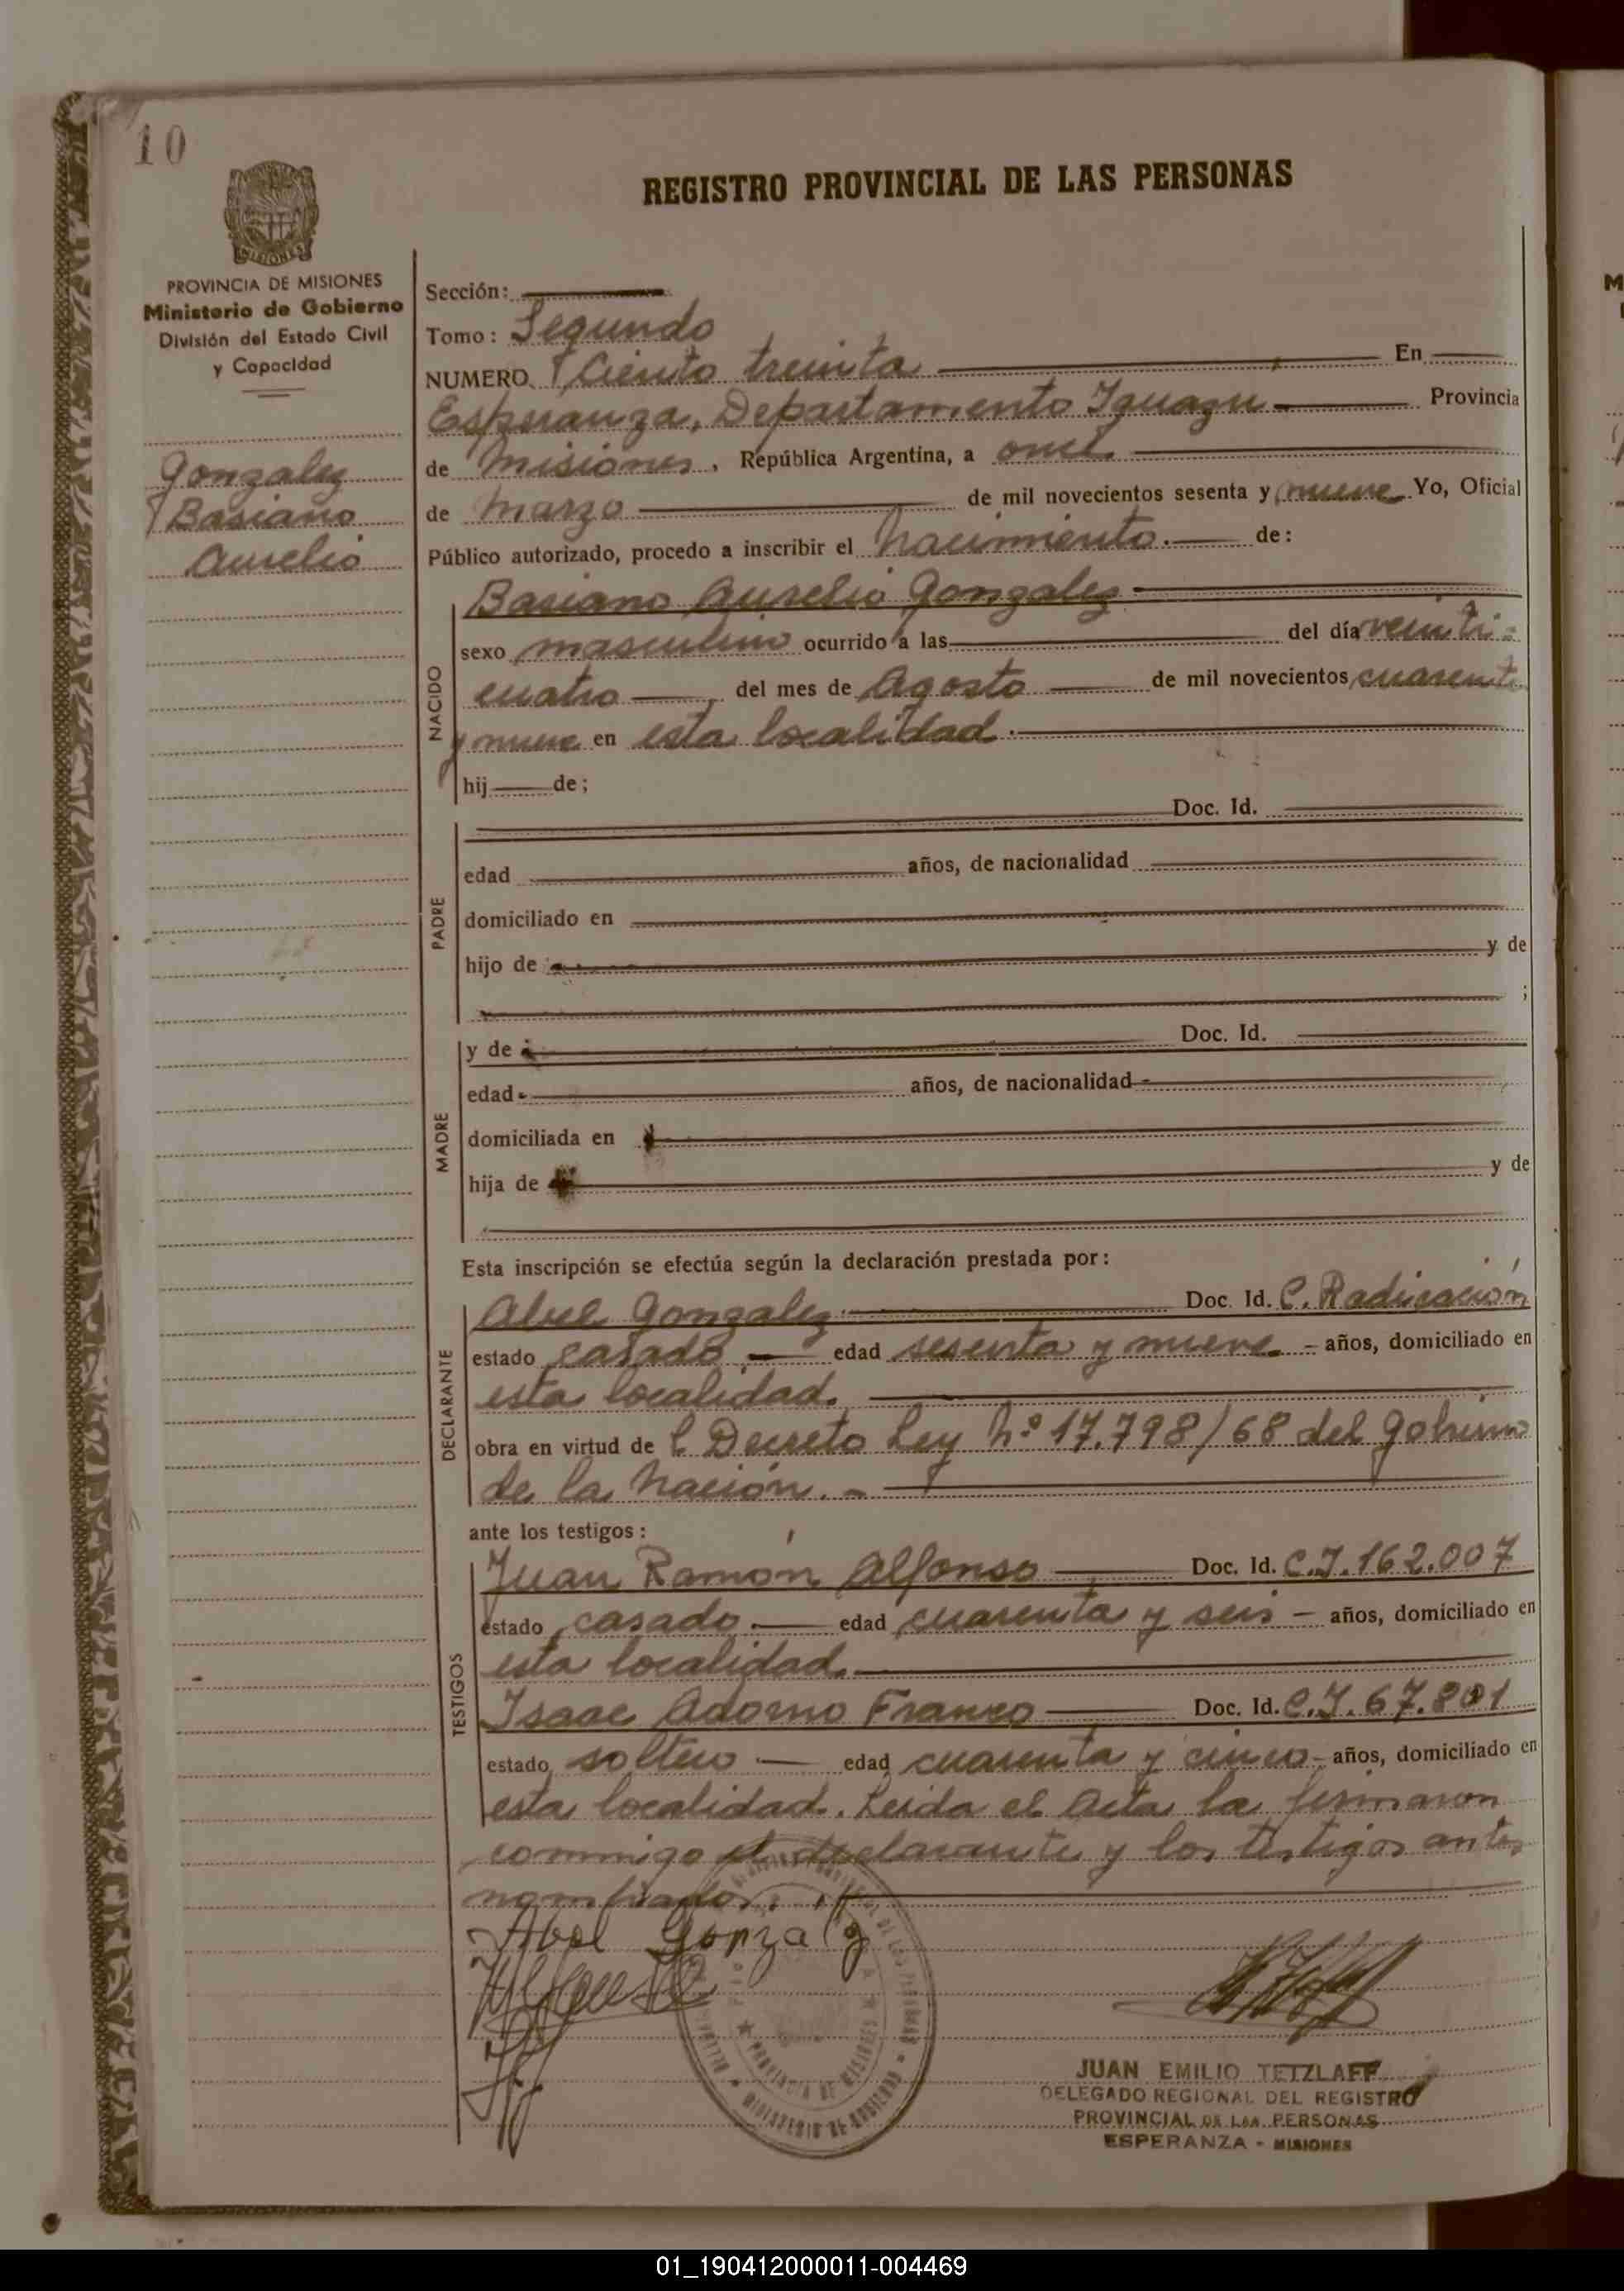 10
REGISTRO PROVINCIAL DE LAS PERSONAS
MISIONES
PROVINCIA DE MISIONES
Ministerio de Gobierno
División del Estado Civil
y Capacidad
Gonzalez
Basiano
Aurelio
Sección:
Tomo: Segundo
NUMERO Ciento treinta En
Esperanza, Departamento Iguazu Provincia
de Misiones, República Argentina, a once
de Marzo de mil novecientos sesenta y nueve Yo, Oficial
Público autorizado, procedo a inscribir el Nacimiento. de:
Basiano Aurelio Gonzalez
NACIDO
sexo masculino ocurrido a las del día veinti-
cuatro del mes de Agosto de mil novecientos cuarenta
y nueve en esta localidad.
hij de;
PADRE
Doc. Id.
edad años, de nacionalidad
domiciliado en
hijo de y de
;
MADRE
y de Doc. Id.
edad años, de nacionalidad
domiciliada en
hija de y de
Esta inscripción se efectúa según la declaración prestada por:
DECLARANTE
Abel Gonzalez Doc. Id. C. Radicación
estado casado edad sesenta y nueve años, domiciliado en
esta localidad.
obra en virtud de l Decreto Ley Nº 17.798/68 del Gobierno
de la Nación.
ante los testigos:
TESTIGOS
Juan Ramón Alfonso Doc. Id. C.I. 162.007
estado casado edad cuarenta y seis años, domiciliado en
esta localidad.
Isaac Adorno Franco Doc. Id. C.I. 67.801
estado soltero edad cuarenta y cinco años, domiciliado en
esta localidad. Leida el Acta la firmaron
conmigo el declarante y los testigos antes
nombrados.
Abel Gonzalez
PROVINCIA DE MISIONES
JUAN EMILIO TETZLAFF
DELEGADO REGIONAL DEL REGISTRO
PROVINCIAL DE LAS PERSONAS
ESPERANZA - MISIONES
01_190412000011-004469